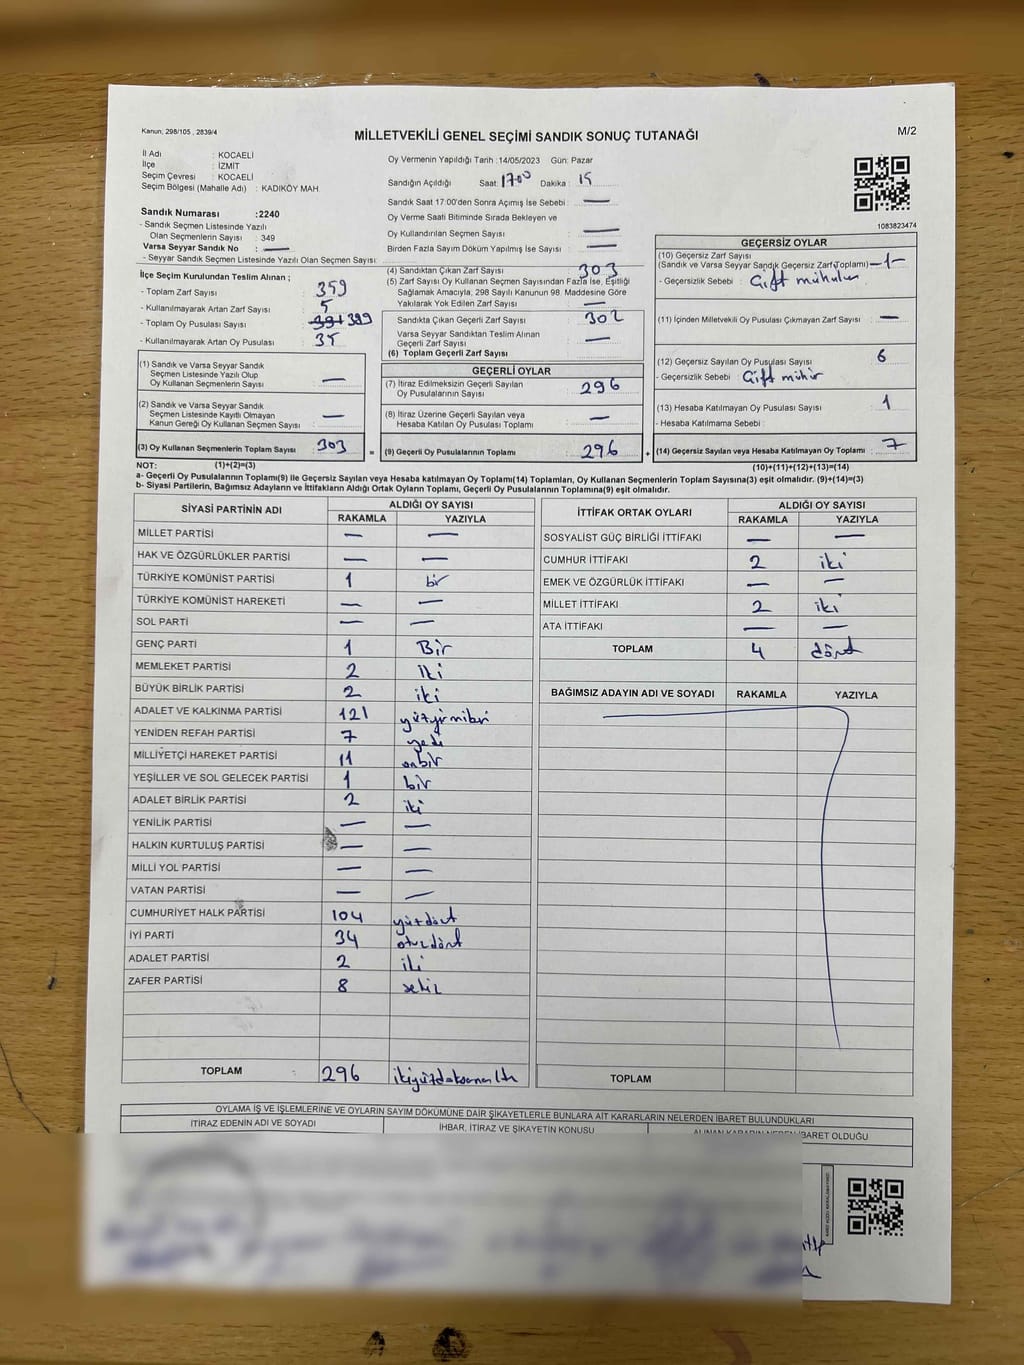 Kanun, 298/105 , 2839/4
MİLLETVEKİLİ GENEL SEÇİMİ SANDIK SONUÇ TUTANAĞI
M/2
İl Adı : KOCAELİ
İlçe : İZMİT
Seçim Çevresi : KOCAELİ
Seçim Bölgesi (Mahalle Adı) : KADIKÖY MAH.
Oy Vermenin Yapıldığı Tarih : 14/05/2023 Gün: Pazar
Sandığın Açıldığı Saat: 17:00 Dakika : 15
Sandık Saat 17:00'den Sonra Açımış İse Sebebi : —
Oy Verme Saati Bitiminde Sırada Bekleyen ve
Oy Kullandırılan Seçmen Sayısı : —
Birden Fazla Sayım Döküm Yapılmış İse Sayısı : —
Sandık Numarası : 2240
- Sandık Seçmen Listesinde Yazılı
Olan Seçmenlerin Sayısı : 349
Varsa Seyyar Sandık No : —
- Seyyar Sandık Seçmen Listesinde Yazılı Olan Seçmen Sayısı:
1083823474
İlçe Seçim Kurulundan Teslim Alınan ;
- Toplam Zarf Sayısı : 359
- Kullanılmayarak Artan Zarf Sayısı : 5
- Toplam Oy Pusulası Sayısı : 399
- Kullanılmayarak Artan Oy Pusulası : 35
(1) Sandık ve Varsa Seyyar Sandık
Seçmen Listesinde Yazılı Olup
Oy Kullanan Seçmenlerin Sayısı : —
(2) Sandık ve Varsa Seyyar Sandık
Seçmen Listesinde Kayıtlı Olmayan
Kanun Gereği Oy Kullanan Seçmen Sayısı : —
(3) Oy Kullanan Seçmenlerin Toplam Sayısı : 303
(4) Sandıktan Çıkan Zarf Sayısı : 303
(5) Zarf Sayısı Oy Kullanan Seçmen Sayısından Fazla İse, Eşitliği
Sağlamak Amacıyla, 298 Sayılı Kanunun 98. Maddesine Göre
Yakılarak Yok Edilen Zarf Sayısı : —
Sandıkta Çıkan Geçerli Zarf Sayısı : 302
Varsa Seyyar Sandıktan Teslim Alınan
Geçerli Zarf Sayısı : —
(6) Toplam Geçerli Zarf Sayısı
GEÇERLİ OYLAR
(7) İtiraz Edilmeksizin Geçerli Sayılan
Oy Pusulalarının Sayısı : 296
(8) İtiraz Üzerine Geçerli Sayılan veya
Hesaba Katılan Oy Pusulası Toplamı : —
= (9) Geçerli Oy Pusulalarının Toplamı : 296
GEÇERSİZ OYLAR
(10) Geçersiz Zarf Sayısı
(Sandık ve Varsa Seyyar Sandık Geçersiz Zarf Toplamı) : —1—
- Geçersizlik Sebebi :
(11) İçinden Milletvekili Oy Pusulası Çıkmayan Zarf Sayısı : —
(12) Geçersiz Sayılan Oy Pusulası Sayısı : 6
- Geçersizlik Sebebi : Çift mühür
(13) Hesaba Katılmayan Oy Pusulası Sayısı : 1
- Hesaba Katılmama Sebebi :
+ (14) Geçersiz Sayılan veya Hesaba Katılmayan Oy Toplamı : 7
NOT: (1)+(2)=(3)
(10)+(11)+(12)+(13)=(14)
a- Geçerli Oy Pusulalarının Toplamı(9) ile Geçersiz Sayılan veya Hesaba katılmayan Oy Toplamı(14) Toplamları, Oy Kullanan Seçmenlerin Toplam Sayısına(3) eşit olmalıdır. (9)+(14)=(3)
b- Siyasi Partilerin, Bağımsız Adayların ve İttifakların Aldığı Ortak Oyların Toplamı, Geçerli Oy Pusulalarının Toplamına(9) eşit olmalıdır.
SİYASİ PARTİNİN ADI ALDIĞI OY SAYISI
RAKAMLA YAZIYLA
MİLLET PARTİSİ — —
HAK VE ÖZGÜRLÜKLER PARTİSİ — —
TÜRKİYE KOMÜNİST PARTİSİ 1 bir
TÜRKİYE KOMÜNİST HAREKETİ — —
SOL PARTİ — —
GENÇ PARTİ 1 Bir
MEMLEKET PARTİSİ 2 İki
BÜYÜK BİRLİK PARTİSİ 2 iki
ADALET VE KALKINMA PARTİSİ 121 yüzyirmibir
YENİDEN REFAH PARTİSİ 7 yedi
MİLLİYETÇİ HAREKET PARTİSİ 11 onbir
YEŞİLLER VE SOL GELECEK PARTİSİ 1 bir
ADALET BİRLİK PARTİSİ 2 iki
YENİLİK PARTİSİ — —
HALKIN KURTULUŞ PARTİSİ — —
MİLLİ YOL PARTİSİ — —
VATAN PARTİSİ — —
CUMHURİYET HALK PARTİSİ 104 yüzdört
İYİ PARTİ 34 otuzdört
ADALET PARTİSİ 2 iki
ZAFER PARTİSİ 8 sekiz
TOPLAM : 296 ikiyüzdoksanaltı
İTTİFAK ORTAK OYLARI ALDIĞI OY SAYISI
RAKAMLA YAZIYLA
SOSYALİST GÜÇ BİRLİĞİ İTTİFAKI — —
CUMHUR İTTİFAKI 2 iki
EMEK VE ÖZGÜRLÜK İTTİFAKI — —
MİLLET İTTİFAKI 2 iki
ATA İTTİFAKI — —
TOPLAM 4 dört
BAĞIMSIZ ADAYIN ADI VE SOYADI RAKAMLA YAZIYLA
TOPLAM
OYLAMA İŞ VE İŞLEMLERİNE VE OYLARIN SAYIM DÖKÜMÜNE DAİR ŞİKAYETLERLE BUNLARA AİT KARARLARIN NELERDEN İBARET BULUNDUKLARI
İTİRAZ EDENİN ADI VE SOYADI İHBAR, İTİRAZ VE ŞİKAYETİN KONUSU ALINAN KARARIN NEDEN İBARET OLDUĞU